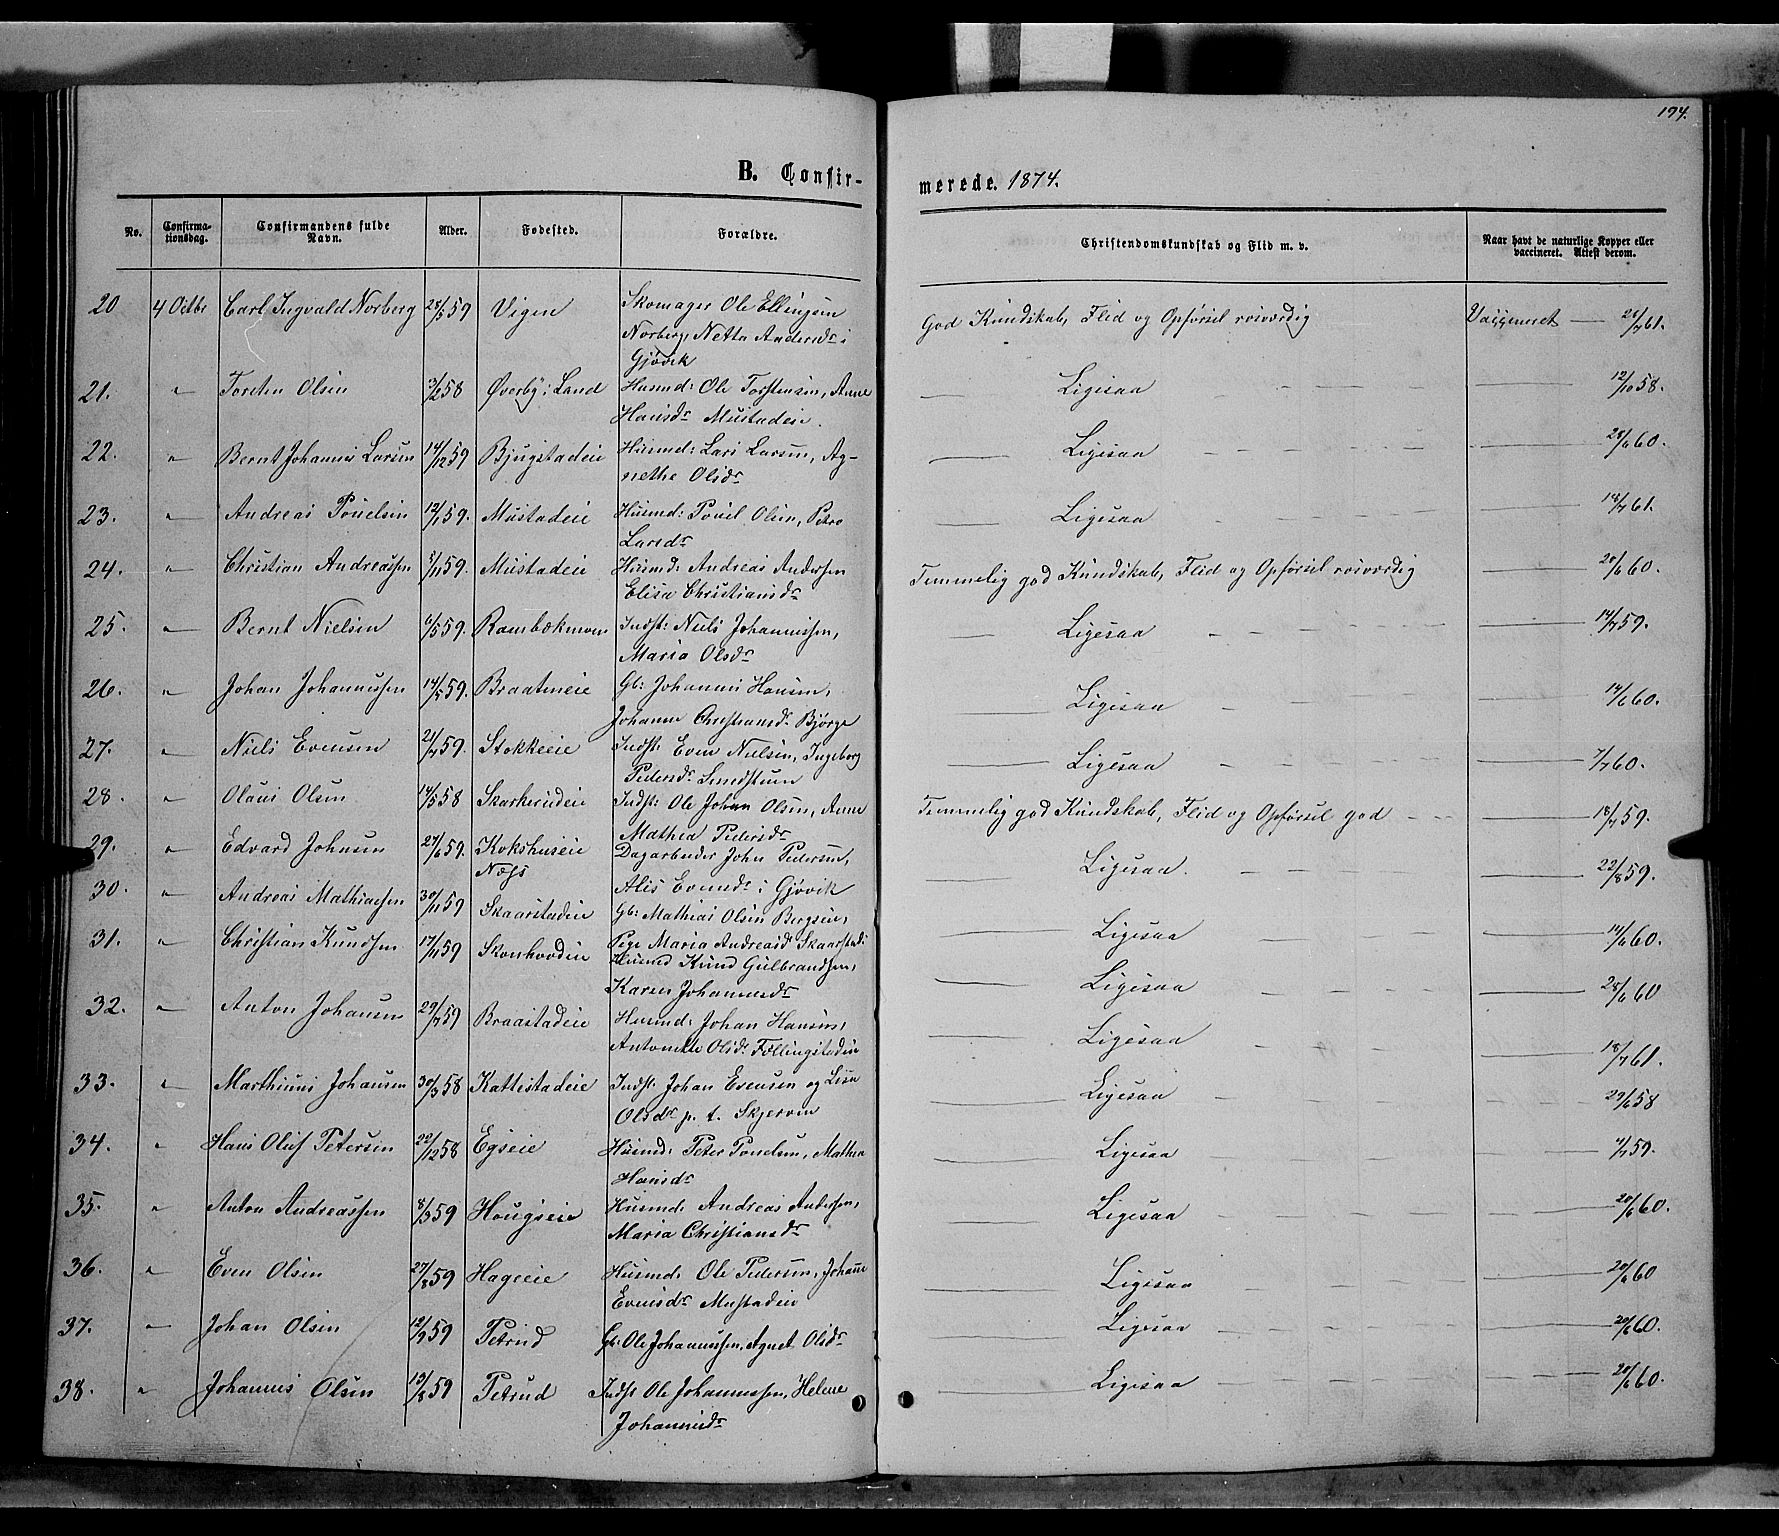 194.
B. Confir-
merede. 1874.
No.
Confirma-
tionsdag.
Confirmandens fulde
Navn.
Alder.
Fødested.
Forældre.
Christendomskundskab og Flid m. v.
Naar havt de naturlige Kopper eller
vaccineret. Attest derom.
20 4 Octbr Carl Ingvald Norberg 28/5 59 Vigen Skomager Ole Ellingsen God Kundskab, Flid og Opførsel rosværdig 61.
Norberg, Netta Andersdr i
Gjøvik
21. " Torsten Olsen 58 Øverby i Land Husmd: Ole Torstensen, Anne Ligesaa 12/10 58.
Hansdr Mustadeie.
22. " Bernt Johannes Larsen 14/12 59 Bjugstadeie Husmd: Lars Larsen, Ag- Ligesaa 28/6 60.
nethe Olsdr
23. " Andreas Pouelsen 12/1 59. Mustadeie Husmd: Povel Olsen, Petro Ligesaa 18/7 61.
Larsdr
24. " Christian Andreassen 8/11 59. Mustadeie Husmd: Andreas Andersen Temmelig god Kundskab, Flid og Opførsel rosværdig 20/6 60.
Elisa Christiansdr
25. " Bernt Nielsen 6/5 59. Rambækmoen Indst: Niels Johannessen, Ligesaa 14/7 59.
Maria Olsdr
26. " Johan Johannessen 14/5 59. Braatneie Gb: Johannes Hansen, Ligesaa 14/6 60.
Johanne Christiansdr Bjørge
27. " Niels Evensen 21/7 59. Stokkeeie Indst: Even Nielsen, Ingeborg Ligesaa 7/7 60.
Pedersdr Smedstuen
28. " Olaus Olsen 14/5 58 Skarkerudeie Indst: Ole Johan Olsen, Anne Temmelig god Kundskab, Flid og Opførsel god 18/7 59.
Mathea Pedersdr
29. " Edvard Johnsen 27/6 59. Kokshuseie Dagarbeider John Pedersen, Ligesaa. 22/8 59.
Næss Alis Evensdr i Gjøvik
30. " Andreas Mathiasen 30/11 59 Skaarstadeie Gb: Mathias Olsen Bergseie, Ligesaa 14/6 60.
Pige Maria Andreasd. Skaarstad:
31. " Christian Knudsen 17/11 59 Skonhovdeie Husmd Knud Gulbrandsen, Ligesaa 28/6 60
Karen Johannesdr
32. " Anton Johansen 29/7 59 Braastadeie Husmd: Johan Hansen, Ligesaa 18/7 61.
Antonette Olsdr Føllingstadeie
33. " Marthinus Johansen 30/3 58 Kattestadeie Indst: Johan Evensen og Lisa Ligesaa 29/6 58
Olsdr p. t. Skjerven
34. " Hans Oluf Petersen 22/12 58 Egseie Husmd: Peter Pouelsen, Mathea Ligesaa 59.
Hansdr
35. " Anton Andreassen 8/3 59 Hougseie Husmd: Andreas Andersen, Ligesaa 20/6 60.
Maria Christiansdr
36. " Even Olsen 27/8 59 Hageeie Husmd: Ole Pedersen, Johanne Ligesaa 20/6 60
Evensdr Mustadeie
37. " Johan Olsen 12/9 59 Petrud Gb: Ole Johannessen, Agnet Olsdr Ligesaa 20/6 60.
38. " Johannes Olsen 13/8 59 Petrud Indst Ole Johannessen, Helene Ligesaa 20/6 60.
Johannesdr